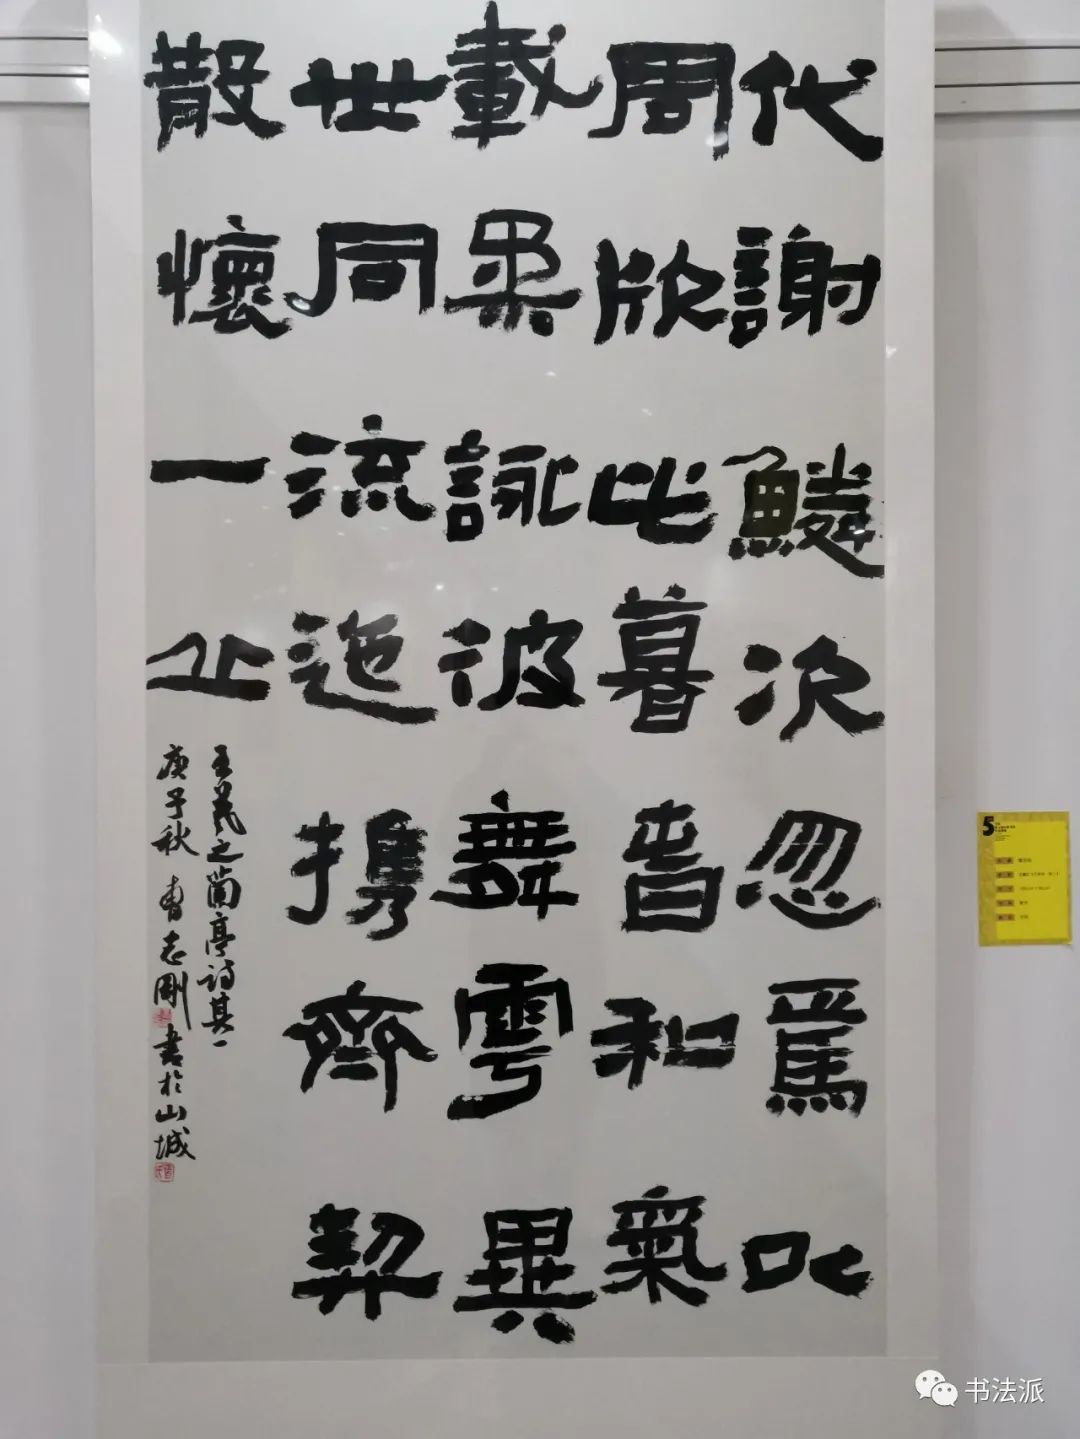 代謝鱗次忽焉以
周欣此暮春和氣
載柔詠彼舞雩異
世同流迺攜齊契
散懷一丘
王羲之蘭亭詩其一
庚子秋曹志剛書於山城
5
书法派